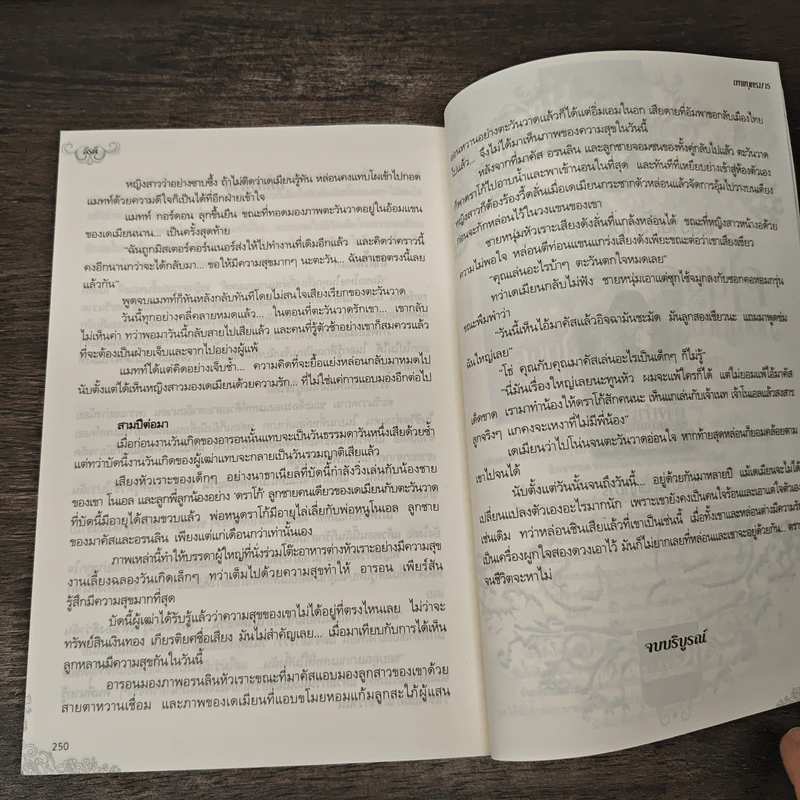 สิรศี
หญิงสาวว่าอย่างซาบซึ้ง ถ้าไม่ติดว่าเดเมียนรู้ทัน หล่อนคงแทบโผเข้าไปกอด
แมทท์ด้วยความดีใจก็เป็นได้ที่อีกฝ่ายเข้าใจ
แมทท์ กอร์ดอน ลุกขึ้นยืน ขณะที่ทอดมองภาพตะวันวาดอยู่ในอ้อมแขน
ของเดเมียนนาน... เป็นครั้งสุดท้าย
“ฉันถูกมิสเตอร์คอร์เนอร์ส่งให้ไปทำงานที่เดิมอีกแล้ว และคิดว่าคราวนี้
คงอีกนานกว่าจะได้กลับมา... ขอให้มีความสุขมากๆ นะตะวัน... ฉันลาเธอตรงนี้เลย
แล้วกัน”
พูดจบแมทท์ก็หันหลังกลับทันทีโดยไม่สนใจเสียงเรียกของตะวันวาด
วันนี้ทุกอย่างคลี่คลายหมดแล้ว... ในตอนที่ตะวันวาดรักเขา... เขากลับ
ไม่เห็นค่า ทว่าพอมาวันนี้กลับสายไปเสียแล้ว และคนที่รู้ตัวช้าอย่างเขาก็สมควรแล้ว
ที่จะต้องเป็นฝ่ายเจ็บและจากไปอย่างผู้แพ้
แมทท์ได้แต่คิดอย่างเจ็บช้ำ... ความคิดที่จะยื้อแย่งหล่อนกลับมาหมดไป
นับตั้งแต่ได้เห็นหญิงสาวมองเดเมียนด้วยความรัก... ที่ไม่ใช่แค่การแอบมองอีกต่อไป
สามปีต่อมา
เมื่อก่อนงานวันเกิดของอารอนนั้นแทบจะเป็นวันธรรมดาวันหนึ่งเสียด้วยซ้ำ
แต่ทว่าบัดนี้งานวันเกิดของผู้เฒ่าแทบจะกลายเป็นวันรวมญาติเสียแล้ว
เสียงหัวเราะของเด็กๆ อย่างนาธาเนียลที่บัดนี้กำลังวิ่งเล่นกับน้องชาย
ของเขา โนเอล และลูกพี่ลูกน้องอย่าง ‘ดราโก้’ ลูกชายคนเดียวของเดเมียนกับตะวันวาด
ที่บัดนี้มีอายุได้สามขวบแล้ว พ่อหนูดราโก้มีอายุไล่เลี่ยกับพ่อหนูโนเอล ลูกชาย
ของมาคัสและอรนลิน เพียงแต่แก่เดือนกว่าเท่านั้นเอง
ภาพเหล่านี้ทำให้บรรดาผู้ใหญ่ที่นั่งร่วมโต๊ะอาหารต่างหัวเราะอย่างมีความสุข
งานเลี้ยงฉลองวันเกิดเล็กๆ ทว่าเต็มไปด้วยความสุขทำให้ อารอน เพียร์สัน
รู้สึกมีความสุขมากที่สุด
บัดนี้ผู้เฒ่าได้รับรู้แล้วว่าความสุขของเขาไม่ได้อยู่ที่ตรงไหนเลย ไม่ว่าจะ
ทรัพย์สินเงินทอง เกียรติยศชื่อเสียง มันไม่สำคัญเลย... เมื่อมาเทียบกับการได้เห็น
ลูกหลานมีความสุขกันในวันนี้
อารอนมองภาพอรนลินหัวเราะขณะที่มาคัสแอบมองลูกสาวของเขาด้วย
สายตาหวานเชื่อม และภาพของเดเมียนที่แอบขโมยหอมแก้มลูกสะใภ้ผู้แสน
250
อ่อนหวานอย่างตะวันวาดแล้วก็ได้แต่อิ่มเอมในอก เสียดายที่อัมพาขอกลับเมืองไทย
ไปแล้ว... จึงไม่ได้มาเห็นภาพของความสุขในวันนี้
หลังจากที่มาคัส อรนลิน และลูกชายจอมซนของทั้งคู่กลับไปแล้ว ตะวันวาด
ก็พาดราโก้ไปอาบน้ำและพาเข้านอนในที่สุด และทันทีที่เหยียบย่างเข้าสู่ห้องตัวเอง
หญิงสาวก็ต้องร้องวี้ดลั่นเมื่อเดเมียนกระชากตัวหล่อนแล้วจัดการอุ้มไปวางบนเตียง
ก่อนจะกักหล่อนไว้ในวงแขนของเขา
ชายหนุ่มหัวเราะเสียงดังลั่นที่แกล้งหล่อนได้ ขณะที่หญิงสาวหน้างอด้วย
ความไม่พอใจ หล่อนตีท่อนแขนแกร่งเสียงดังเพียะขณะต่อว่าเขาเสียงเขียว
“คุณเล่นอะไรบ้าๆ ตะวันตกใจหมดเลย”
ทว่าเดเมียนกลับไม่ฟัง ชายหนุ่มเอาแต่ซุกไซ้จมูกลงกับซอกคอหอมกรุ่น
ขณะพึมพำว่า
“วันนี้เห็นไอ้มาคัสแล้วอิจฉามันชะมัด มันลูกสองเชียวนะ แถมมาพูดข่ม
ฉันใหญ่เลย”
“โธ่ คุณกับคุณมาคัสเล่นอะไรเป็นเด็กๆ ก็ไม่รู้”
“นี่มันเรื่องใหญ่เลยนะทูนหัว ผมจะแพ้ใครก็ได้ แต่ไม่ยอมแพ้ไอ้มาคัส
เด็ดขาด เรามาทำน้องให้ดราโก้สักคนนะ เห็นแกเล่นกับเจ้าเนท เจ้าโนเอลแล้วสงสาร
ลูกจริงๆ แกคงจะเหงาที่ไม่มีพี่น้อง”
เดเมียนว่าไปโน่นจนตะวันวาดอ่อนใจ หากท้ายสุดหล่อนก็ยอมคล้อยตาม
เขาไปจนได้
นับตั้งแต่วันนั้นจนถึงวันนี้... อยู่ด้วยกันมาหลายปี แม้เดเมียนจะไม่ได้
เปลี่ยนแปลงตัวเองอะไรมากนัก เพราะเขายังคงเป็นคนใจร้อนและเอาแต่ใจตัวเอง
เช่นเดิม ทว่าหล่อนชินเสียแล้วที่เขาเป็นเช่นนี้ เมื่อทั้งเขาและหล่อนต่างมีความรัก
เป็นเครื่องผูกใจสองดวงเอาไว้ มันก็ไม่ยากเลยที่หล่อนและเขาจะอยู่ด้วยกัน... ตราบ
จนชีวิตจะหาไม่
จบบริบูรณ์